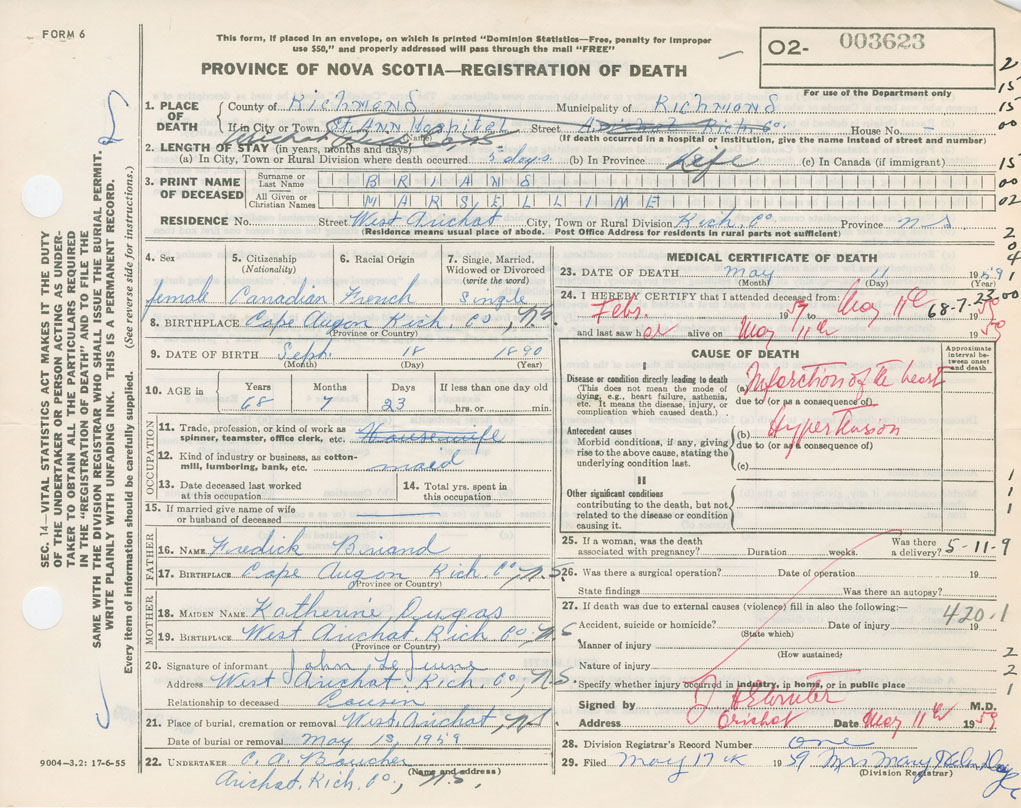 FORM 6
This form, if placed in an envelope, on which is printed "Dominion Statistics—Free, penalty for improper
use $50," and properly addressed will pass through the mail "FREE"
PROVINCE OF NOVA SCOTIA—REGISTRATION OF DEATH
02- 003623
For use of the Department only
SEC. 14—VITAL STATISTICS ACT MAKES IT THE DUTY
OF THE UNDERTAKER OR PERSON ACTING AS UNDER-
TAKER TO OBTAIN ALL THE PARTICULARS REQUIRED
IN THE "REGISTRATION OF DEATH" AND TO FILE THE
SAME WITH THE DIVISION REGISTRAR WHO SHALL ISSUE THE BURIAL PERMIT.
WRITE PLAINLY WITH UNFADING INK. THIS IS A PERMANENT RECORD.
Every item of information should be carefully supplied. (See reverse side for instructions.)
1. PLACE OF DEATH
County of Richmond Municipality of Richmond
If in City or Town St. Ann Hospital Street Arichat Rich. Co. House No. -
(Name) (If death occurred in a hospital or institution, give the name instead of street and number)
2. LENGTH OF STAY (in years, months and days)
(a) In City, Town or Rural Division where death occurred 5 days (b) In Province Life (c) In Canada (if immigrant)
3. PRINT NAME OF DECEASED
Surname or Last Name BRIAND
All Given or Christian Names MARSELLINE
RESIDENCE No. Street West Arichat City, Town or Rural Division Rich. Co. Province N S
(Residence means usual place of abode. Post Office Address for residents in rural parts not sufficient)
4. Sex female
5. Citizenship (Nationality) Canadian
6. Racial Origin French
7. Single, Married, Widowed or Divorced (write the word) Single
8. BIRTHPLACE Cape Augon Rich. Co, N.S.
(Province or Country)
9. DATE OF BIRTH Sept. 18 1890
(Month) (Day) (Year)
10. AGE in Years Months Days If less than one day old
68 7 23 hrs. or min.
OCCUPATION
11. Trade, profession, or kind of work as spinner, teamster, office clerk, etc. Housewife
12. Kind of industry or business, as cotton-mill, lumbering, bank, etc. maid
13. Date deceased last worked at this occupation
14. Total yrs. spent in this occupation
15. If married give name of wife or husband of deceased
FATHER
16. NAME Fredick Briand
17. BIRTHPLACE Cape Augon Rich. Co, N.S
(Province or Country)
MOTHER
18. MAIDEN NAME Katherine Dugas
19. BIRTHPLACE West Arichat. Rich Co, N.S
(Province or Country)
20. Signature of informant John LeJeune
Address West Arichat. Rich. Co, N.S.
Relationship to deceased Cousin
21. Place of burial, cremation or removal West Arichat, N S
Date of burial or removal May 13, 1959
22. UNDERTAKER C. A. Boucher
(Name and address)
Arichat. Rich. Co, N.S.
9004-3.2: 17-6-55
MEDICAL CERTIFICATE OF DEATH
23. DATE OF DEATH May 11 1959
(Month) (Day) (Year)
24. I HEREBY CERTIFY that I attended deceased from:
Feb. 1959 to May 11th 1959
68-7-23
and last saw her alive on May 11th 1959
CAUSE OF DEATH
Approximate interval between onset and death
I
Disease or condition directly leading to death
(This does not mean the mode of dying, e.g., heart failure, asthenia, etc. It means the disease, injury, or complication which caused death.)
(a) Infarction of the heart
due to (or as a consequence of)
Antecedent causes
Morbid conditions, if any, giving rise to the above cause, stating the underlying condition last.
(b) Hypertension
due to (or as a consequence of)
(c)
II
Other significant conditions
contributing to the death, but not related to the disease or condition causing it.
25. If a woman, was the death associated with pregnancy? Duration weeks. Was there a delivery?
5-11-9
26. Was there a surgical operation? Date of operation 19
State findings Was there an autopsy?
27. If death was due to external causes (violence) fill in also the following:—
420.1
Accident, suicide or homicide? Date of injury 19
(State which)
Manner of injury
(How sustained)
Nature of injury
Specify whether injury occurred in industry, in home, or in public place
Signed by M.D.
Address Arichat Date May 11th 1959
28. Division Registrar's Record Number one
29. Filed May 17th 1959 Mrs Mary Helen
(Division Registrar)
2
15
15
00
15
00
02
2
0
4
1
00
1
1
1
2
2
1